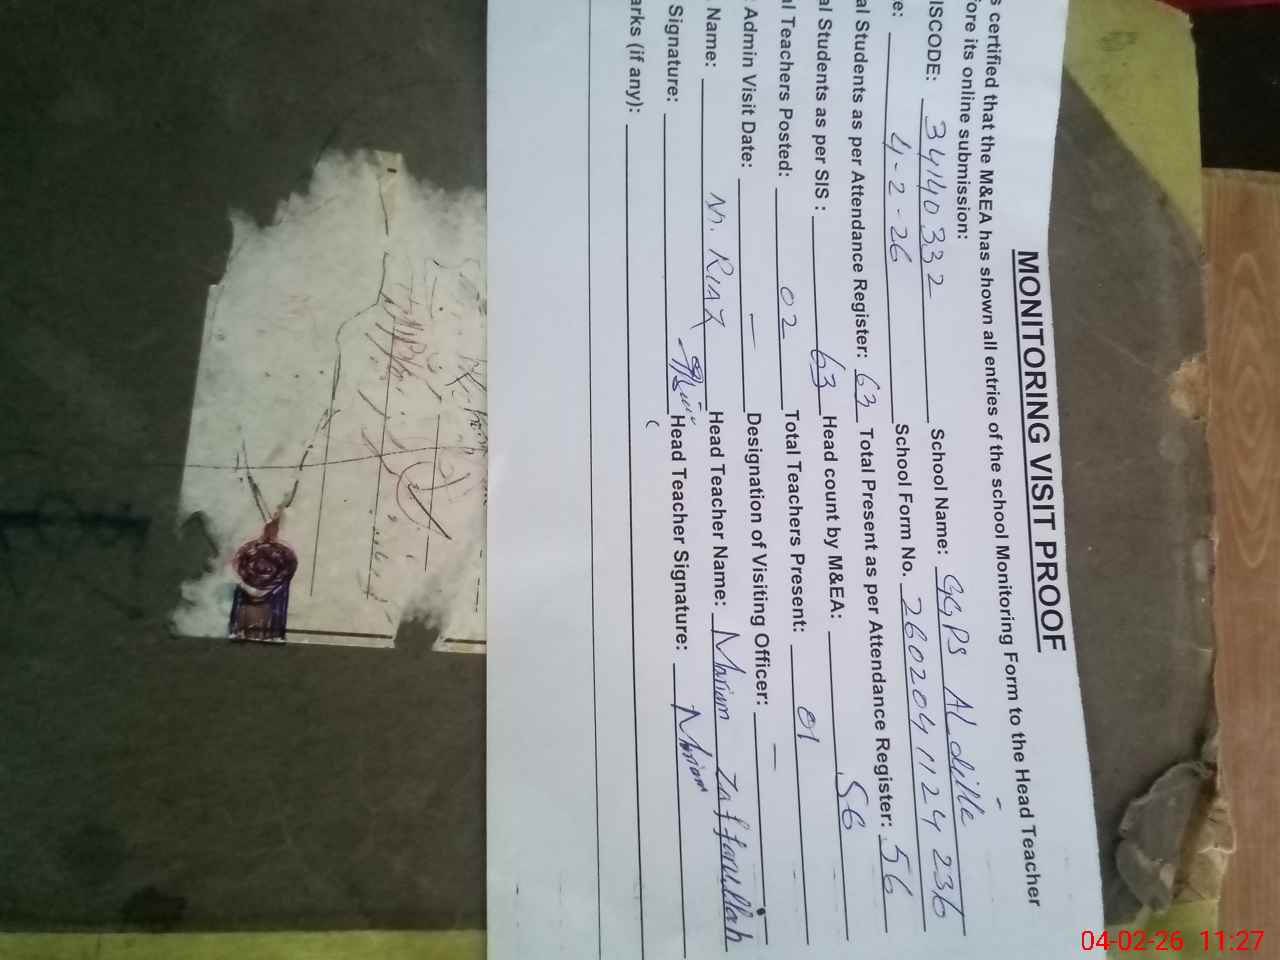 MONITORING VISIT PROOF
s certified that the M&EA has shown all entries of the school Monitoring Form to the Head Teacher
fore its online submission:
ISCODE: 34140332 School Name: GGPS
e: 4-2-26 School Form No. 26020411124236
al Students as per Attendance Register: 63 Total Present as per Attendance Register: 56
al Students as per SIS : 63 Head count by M&EA: 56
al Teachers Posted: 02 Total Teachers Present: 01
Admin Visit Date: — Designation of Visiting Officer: —
Name: M. RIAZ Head Teacher Name: Mariam Zaffarullah
Signature: Head Teacher Signature: Mariam
arks (if any):
04-02-26 11:27